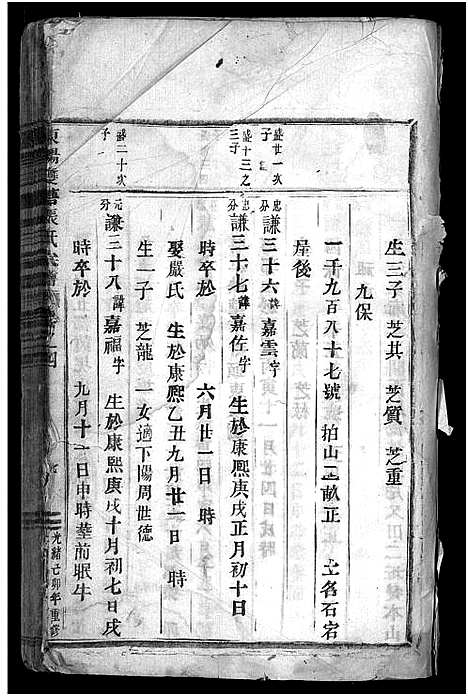 生三子 芝其 芝質 芝重
九保
一千九百八十七號 拍山二畝正 土名石宕
岸後
盛廿一次子
忠分謙三十六諱嘉雲字
盛十三之三子
忠分謙三十七諱嘉佐字 生於康熙庚戌正月初十日
時卒於 六月廿一日 時
娶嚴氏 生於康熙乙丑九月廿一日 時
生一子 芝龍 一女適下陽周世德
盛二十次子
元分謙三十八諱嘉福字 生於康熙庚戌十月初七日戌
時卒於 九月十一日申時葬前眠牛
張氏宗譜
光緒己卯年重修